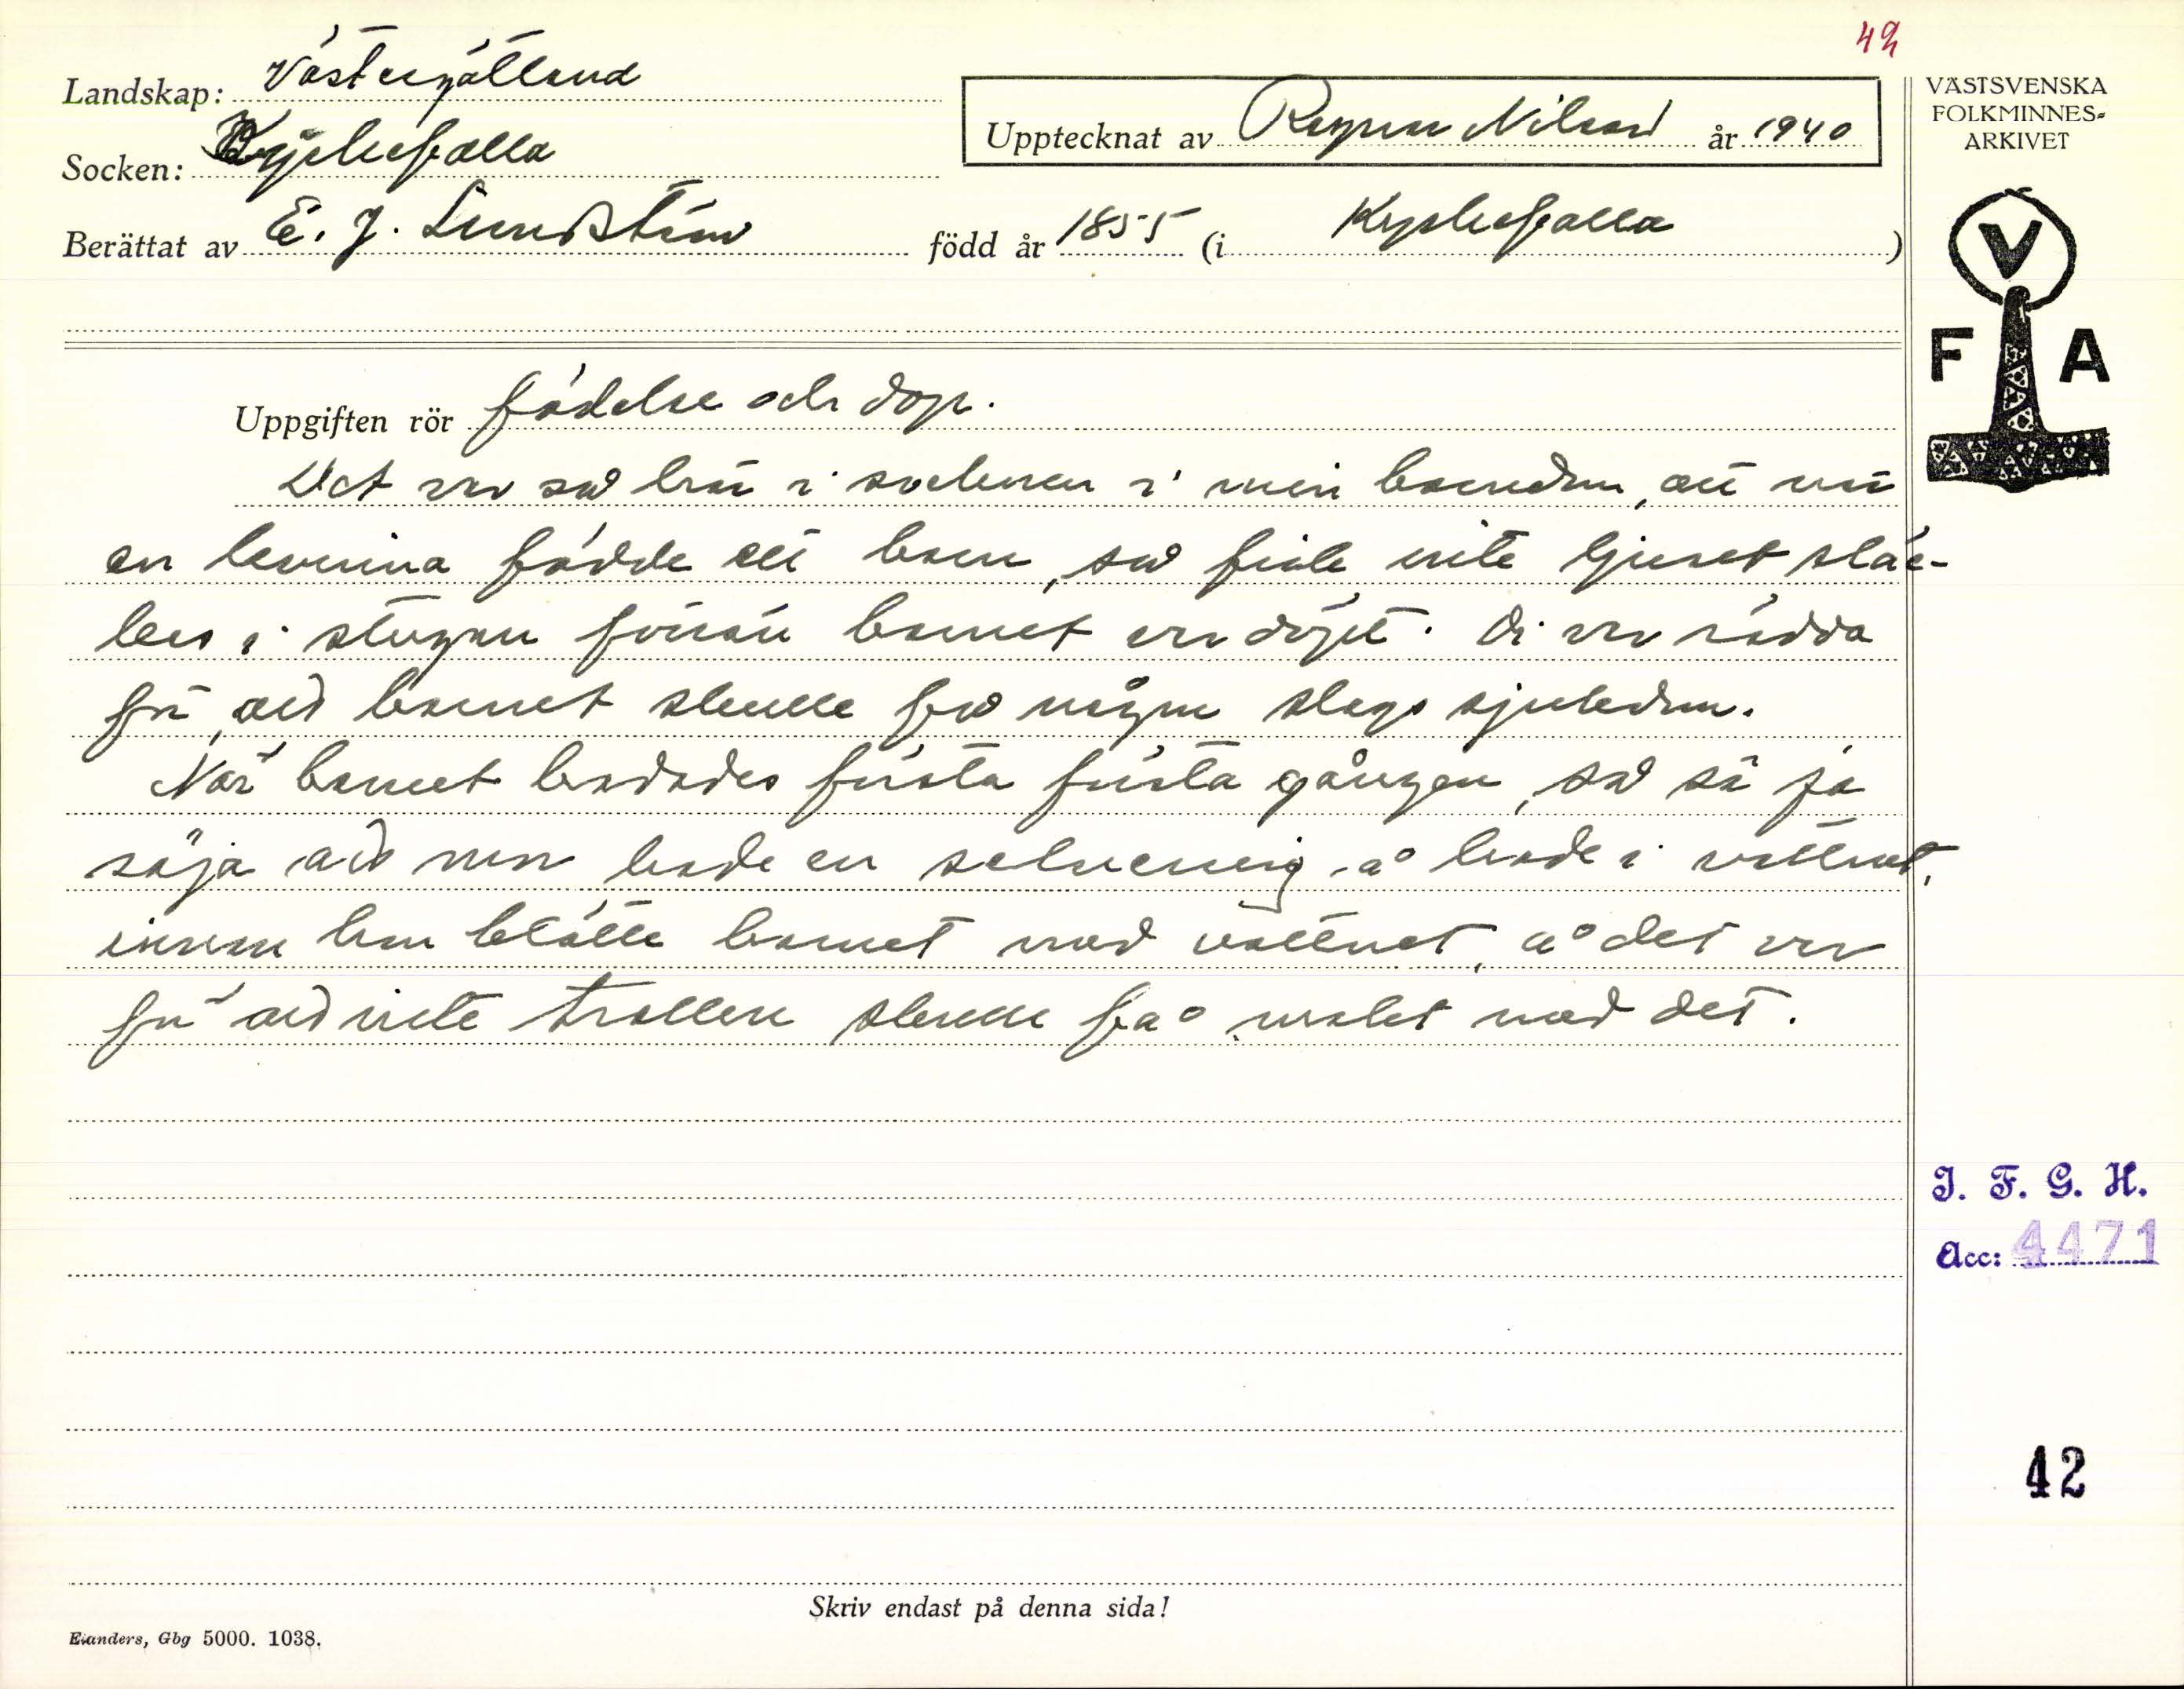 42
Landskap: Västergötland
Socken: Kyrkefalla
Upptecknat av Ragnar Nilsson år 1940
Berättat av E. J. Lundström född år 1855 (i Kyrkefalla)
VÄSTSVENSKA
FOLKMINNES-
ARKIVET
V
F A
Uppgiften rör födelse och dop.
Det var så här i socknen i min barndom, att när
en kvinna födde ett barn, så fick inte ljuset släc-
kas i stugan förrän barnet var döpt. Di var rädda
för, att barnet skulle få någon slags sjukdom.
När barnet badades första första gången, så så ja
säja att mor hade en selvering å hade i vattnet,
innan hon blötte barnet med vattnet, å det var
för att inte trollen skulle få makt med det.
I. F. G. H.
Acc: 4471
42
Skriv endast på denna sida!
Elanders, Gbg 5000. 1038.